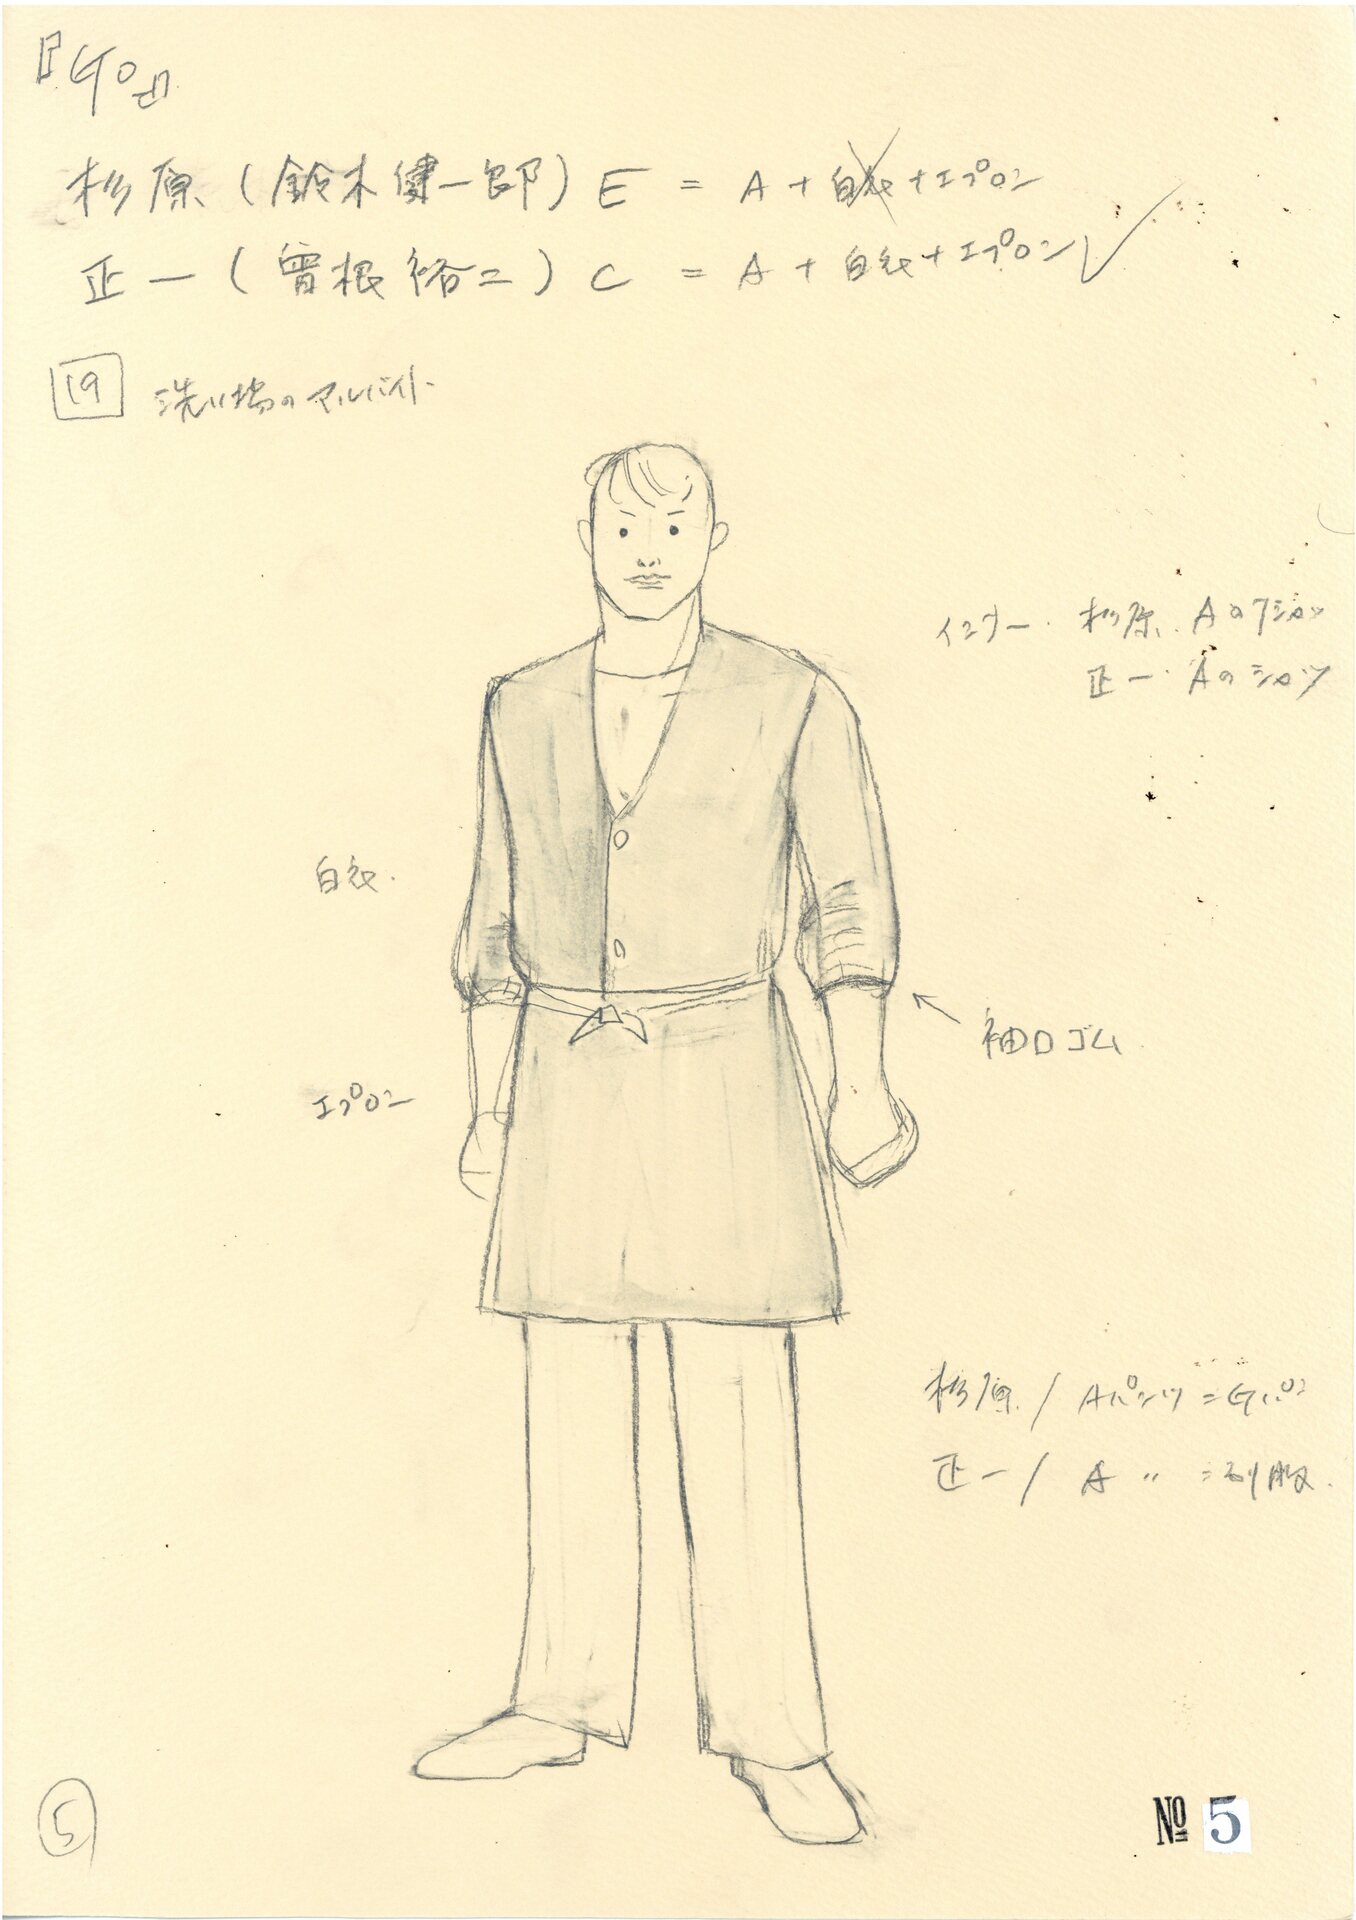 『GO』
杉原（鈴木健一郎）E = A + 白衣 + エプロン
正一（曽根裕二）C = A + 白衣 + エプロン ✓
19 洗い場のアルバイト
インナー. 杉原. AのTシャツ
正一. Aのシャツ
白衣.
袖口ゴム
エプロン
杉原 / Aパンツ = Gパン
正一 / A 〃 = 制服.
5
№ 5